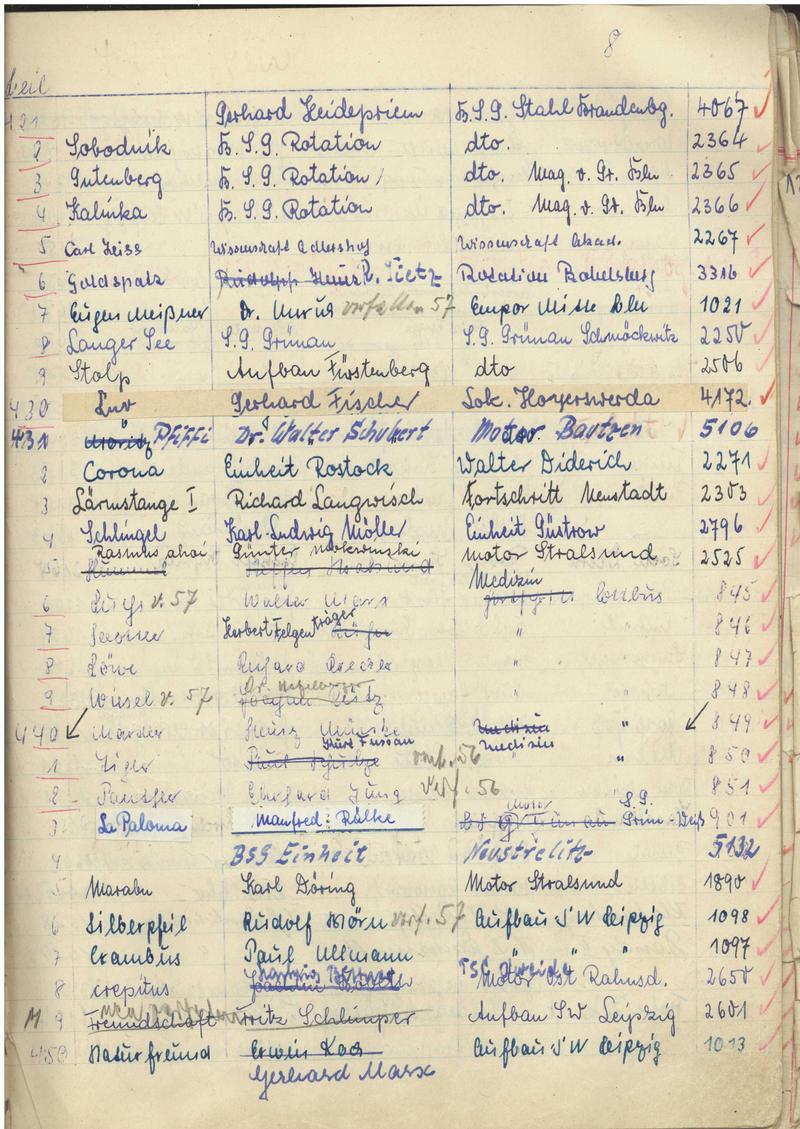 8
421 Gerhard Heidepriem B.S.G. Stahl Brandenbg. 4067
2 Sobodnik B.S.G. Rotation dto. 2364
3 Gutenberg B.S.G. Rotation dto. Mag. v. Gr. Bln 2365
4 Kalinka B.S.G. Rotation dto. Mag. v. Gr. Bln 2366
5 Carl Zeiss Wissenschaft Adlershof Wissenschaft Akad. 2267
6 Goldspatz R. Tietz Rotation Babelsberg 3316
7 Eugen Meißner Dr. Unruh verfallen 57 Empor Mitte Bln 1021
8 Langer See S.G. Grünau S.G. Grünau Schmöckwitz 2250
9 Stolp Aufbau Fürstenberg dto 2506
430 Luv Gerhard Fischer Lok. Hoyerswerda 4172
431 Moritz Pfiffi Dr. Walter Schubert Motor Bautzen 5106
2 Corona Einheit Rostock Walter Diderich 2271
3 Lärmstange I Richard Langwisch Fortschritt Neustadt 2303
4 Schlingel Karl-Ludwig Möller Einheit Güstrow 2796
Rasmus ahoi Günter Motor Stralsund 2525
5 Hummel
Medizin
6 Luchs v. 57 Walter Marx Cottbus 845
7 Herbert Felgenträger " 846
8 Löwe Richard " " 847
9 Wiesel v. 57 Dr. " " 848
440 Marder Medizin " 849
Kurt Medizin
1 Tiger Paul Schulze verf. 56 " 850
2 Panther Ehrhard Jung verf. 56 851
Motor S.G.
3 La Paloma Manfred Rülke Grün-Weiß 901
4 BSG Einheit Neustrelitz 5132
5 Marabu Karl Döring Motor Stralsund 1890
6 Silberpfeil Rudolf Mörn verf. 57 Aufbau SW Leipzig 1098
7 Crambus Paul Ullmann " " 1097
8 crepitus TSC Motor Ost Rahnsd. 2650
M 9 Freundschaft Fritz Schlimper Aufbau SW Leipzig 2601
450 Naturfreund Erwin Koch Aufbau SW Leipzig 1013
Gerhard Marx